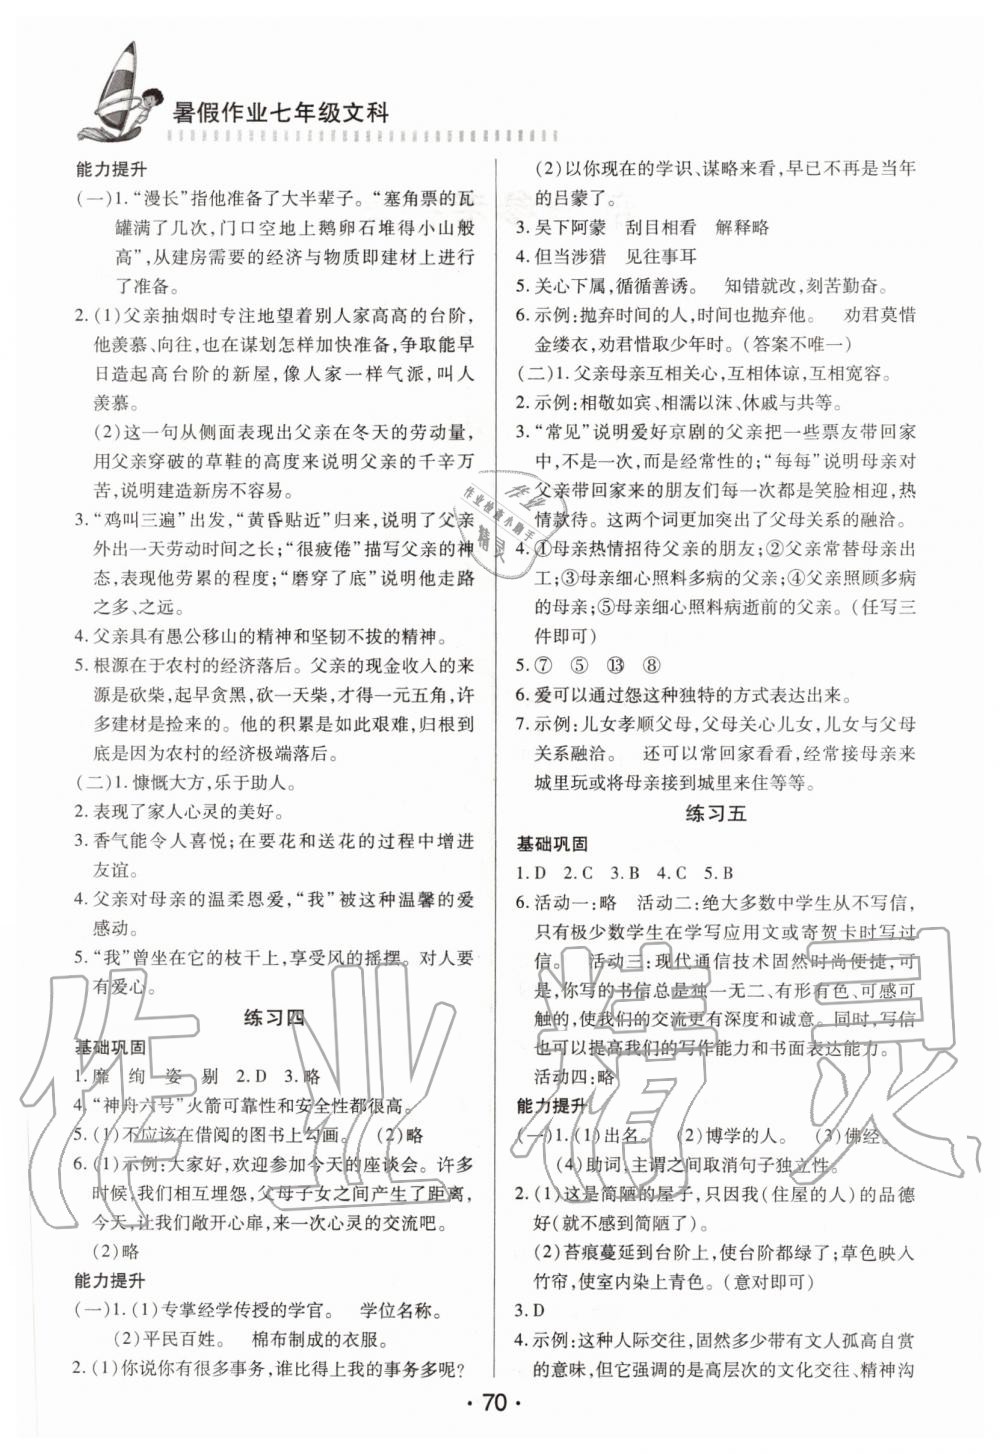 暑假作业七年级文科
能力提升
(一)1.“漫长”指他准备了大半辈子。“塞角票的瓦
罐满了几次,门口空地上鹅卵石堆得小山般
高”,从建房需要的经济与物质即建材上进行
了准备。
2.(1)父亲抽烟时专注地望着别人家高高的台阶,
他羡慕、向往,也在谋划怎样加快准备,争取能早
日造起高台阶的新屋,像人家一样气派,叫人
羡慕。
(2)这一句从侧面表现出父亲在冬天的劳动量,
用父亲穿破的草鞋的高度来说明父亲的千辛万
苦,说明建造新房不容易。
3.“鸡叫三遍”出发,“黄昏贴近”归来,说明了父亲
外出一天劳动时间之长;“很疲倦”描写父亲的神
态,表现他劳累的程度;“磨穿了底”说明他走路
之多、之远。
4.父亲具有愚公移山的精神和坚韧不拔的精神。
5.根源在于农村的经济落后。父亲的现金收入的来
源是砍柴,起早贪黑,砍一天柴,才得一元五角,许
多建材是捡来的。他的积累是如此艰难,归根到
底是因为农村的经济极端落后。
(二)1.慷慨大方,乐于助人。
2.表现了家人心灵的美好。
3.香气能令人喜悦;在要花和送花的过程中增进
友谊。
4.父亲对母亲的温柔恩爱,“我”被这种温馨的爱
感动。
5.“我”曾坐在它的枝干上,享受风的摇摆。对人要
有爱心。
练习四
基础巩固
1.靡 绚 姿 剔 2.D 3.略
4.“神舟六号”火箭可靠性和安全性都很高。
5.(1)不应该在借阅的图书上勾画。 (2)略
6.(1)示例:大家好,欢迎参加今天的座谈会。许多
时候,我们相互埋怨,父母子女之间产生了距离,
今天,让我们敞开心扉,来一次心灵的交流吧。
(2)略
能力提升
(一)1.(1)专掌经学传授的学官。 学位名称。
(2)平民百姓。 棉布制成的衣服。
2.(1)你说你有很多事务,谁比得上我的事务多呢?
(2)以你现在的学识、谋略来看,早已不再是当年
的吕蒙了。
3.吴下阿蒙 刮目相看 解释略
4.但当涉猎 见往事耳
5.关心下属,循循善诱。 知错就改,刻苦勤奋。
6.示例:抛弃时间的人,时间也抛弃他。 劝君莫惜
金缕衣,劝君惜取少年时。(答案不唯一)
(二)1.父亲母亲互相关心,互相体谅,互相宽容。
2.示例:相敬如宾、相濡以沫、休戚与共等。
3.“常见”说明爱好京剧的父亲把一些票友带回家
中,不是一次,而是经常性的;“每每”说明母亲对
父亲带回家来的朋友们每一次都是笑脸相迎,热
情款待。这两个词更加突出了父母关系的融洽。
4.①母亲热情招待父亲的朋友;②父亲常替母亲出
工;③母亲细心照料多病的父亲;④父亲照顾多病
的母亲;⑤母亲细心照料病逝前的父亲。(任写三
件即可)
5.⑦ ⑤ ⑬ ⑧
6.爱可以通过怨这种独特的方式表达出来。
7.示例:儿女孝顺父母,父母关心儿女,儿女与父母
关系融洽。 还可以常回家看看,经常接母亲来
城里玩或将母亲接到城里来住等等。
练习五
基础巩固
1.D 2.C 3.B 4.C 5.B
6.活动一:略 活动二:绝大多数中学生从不写信,
只有极少数学生在学写应用文或寄贺卡时写过
信。 活动三:现代通信技术固然时尚便捷,可
是,你写的书信总是独一无二、有形有色、可感可
触的,使我们的交流更有深度和诚意。同时,写信
也可以提高我们的写作能力和书面表达能力。
活动四:略
能力提升
(一)1.(1)出名。 (2)博学的人。 (3)佛经。
(4)助词,主谓之间取消句子独立性。
2.(1)这是简陋的屋子,只因我(住屋的人)的品德
好(就不感到简陋了)。
(2)苔痕蔓延到台阶上,使台阶都绿了;草色映入
竹帘,使室内染上青色。(意对即可)
3.D
4.示例:这种人际交往,固然多少带有文人孤高自赏
的意味,但它强调的是高层次的文化交往、精神沟
·70·
作业
作业检查小助手
精灵
作业精灵